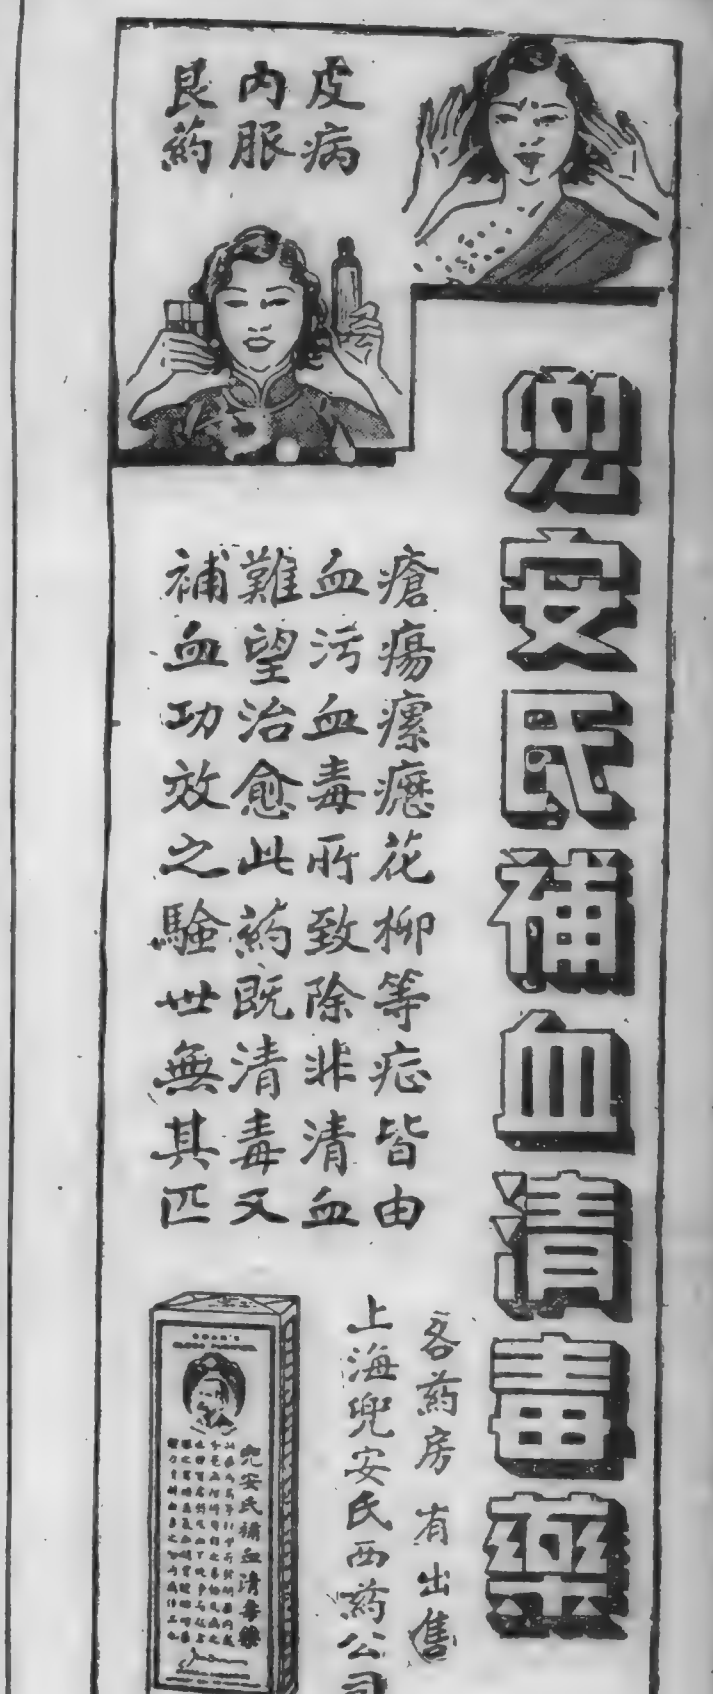 皮病
內服
良药
兜安氏補血清毒藥
瘡瘍瘰癧花柳等症皆由
血污血毒所致除非清血
難望治愈此药既清毒又
補血功效之驗世無其匹
各药房有出售
上海兜安氏西药公司
兜安氏補血清毒藥